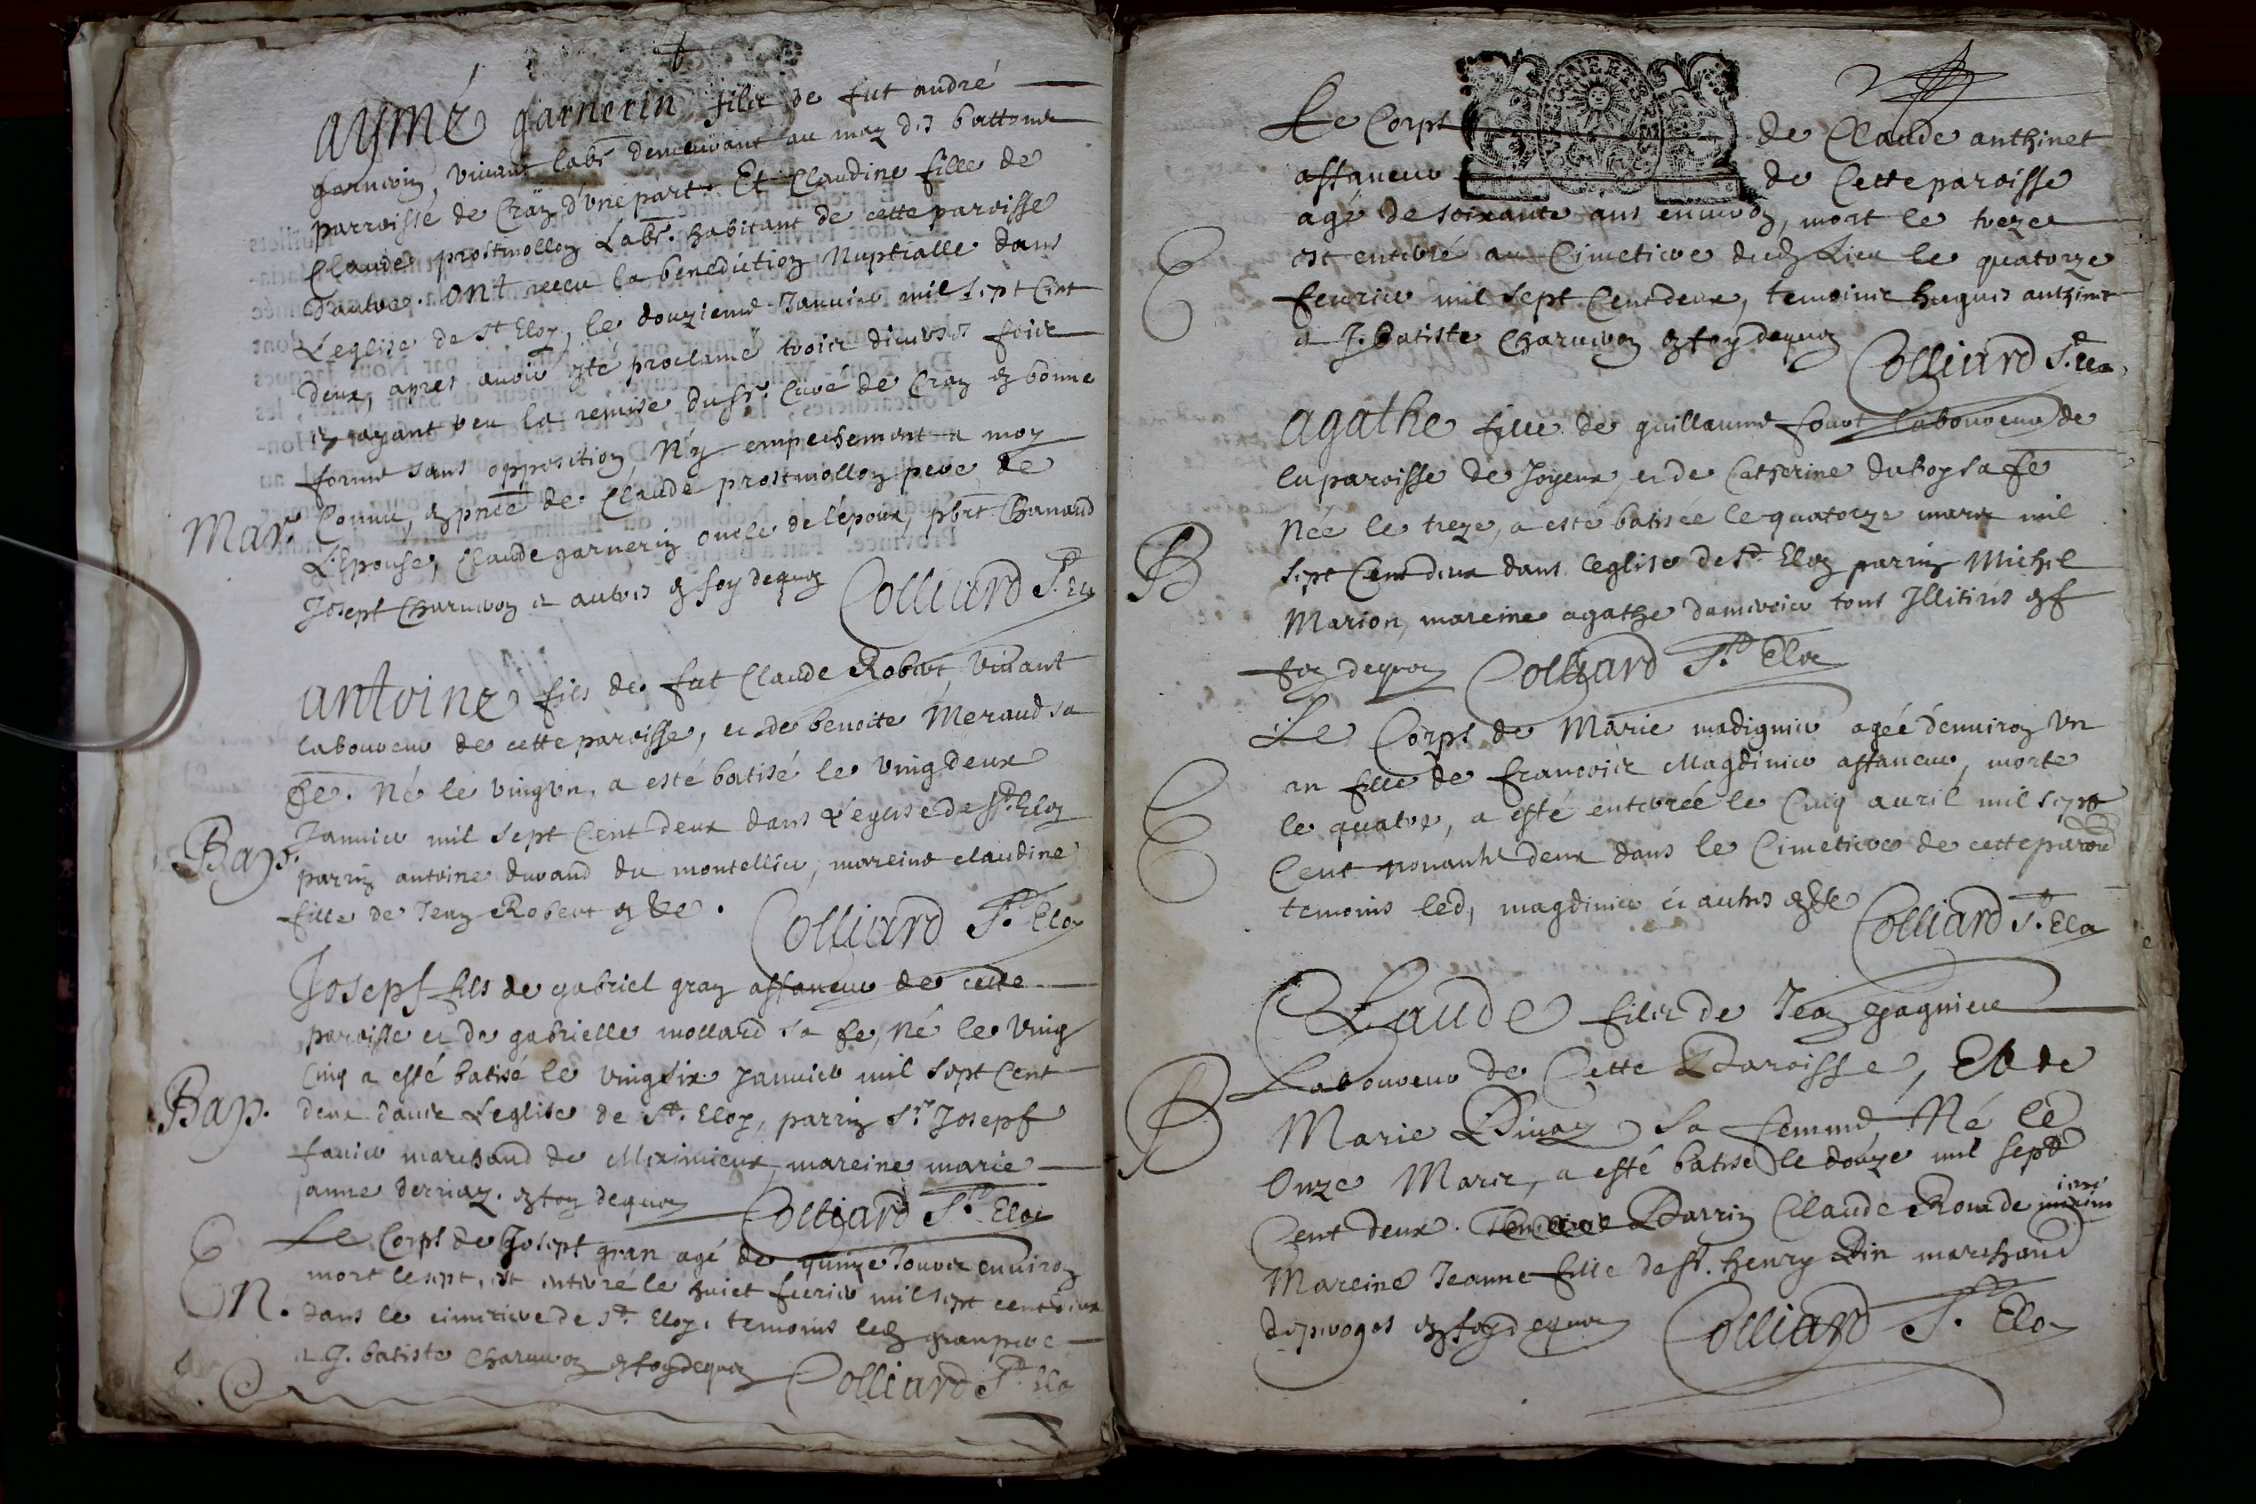 aymé garnerin fils de fut andré
garnerin, vivant labr demeurant au maz des battoner
parroisse de Craz d'une part. Et Claudine fille de
Claude prostmollon Labr. habitant de cette paroisse
d'autre. ont receu la benediction Nuptialle dans
L'eglise de St Eloy, le douzieme Janvier mil sept Cent
deux, apres avoir esté proclamé trois diverses fois
et ayant veu la remise du sr. Curé de Craz en bonne
forme sans opposition, N'y empeschement a moy
Mar. Connu, en pnce de Claude prostmollon pere de
L'Epouse, Claude garnerin oncle de l'époux, pbrt Chanaud
Joseph Charneron et autres en foy dequoy Colliard St. Eloy
antoine fils de fut Claude Robert vivant
laboureur de cette paroisse, et de benoite Meraud sa
fe. Né le vingun, a esté batisé le vingdeux
Janvier mil sept Cent deux dans L'eglise de St. Eloy
Bap. parrin antoine durand du montellier, mareine claudine
fille de Jean Robert en &e. Colliard St. Eloy
Joseph fils de gabriel gran affaneur de cette
paroisse et de gabrielle mollard sa fe, Né le Ving
Cinq a esté batisé le vingsix Janvier mil sept Cent
Bap. deux dans L'eglise de St. Eloy, parrin Sr Joseph
favier marchand de Meximieux, mareine marie
janne derriaz. en foy dequoy Colliard St. Eloy
Le Corps de Joseph gran agé de quinze Jours environ
mort le sept, est enterré le huict fevrier mil sept cent deux
En. dans le cimetiere de St. Eloy, temoins led gran pere
et J. batiste Charneron en foy dequoy Colliard St. Eloy
Le Corps de Claude anthinet
affaneur de Cette paroisse
agé de soixante ans environ, mort le treze
est enterré au Cimetiere dud Lieu le quatorze
E fevrier mil sept Cent deux, temoins hugues anthinet
et J. batiste Charneron en foy dequoy Colliard St. Eloy
agathe fille de guillaume laboureur de
la paroisse de Joyeux, et de Catherine duboy sa fe
Née le treze, a esté batisée le quatorze mars mil
B sept Cent deux dans l'eglise de St. Eloy parrin Michel
Marion, mareine agathe tous Illitirés en
foy dequoy Colliard St. Eloy
Le Corps de Marie madignier agée d'environ un
an fille de francois Magdinier affaneur, morte
le quatre, a esté enterrée le Cinq avril mil sept
E Cent nonante deux dans le Cimetiere de cette paroisse
temoins led, magdinier et autres en &e Colliard St. Eloy
Claude fils de Jean gagnieux
Laboureur de Cette Paroisse, Et de
B Marie Sa femme, Né le
Onze Mars, a esté batisé le douze mil sept
Cent deux. Parrin Claude Roux de
Mareine Jeanne fille de Sr. henry Din marchand
de peroges en foy dequoy Colliard St. Eloy